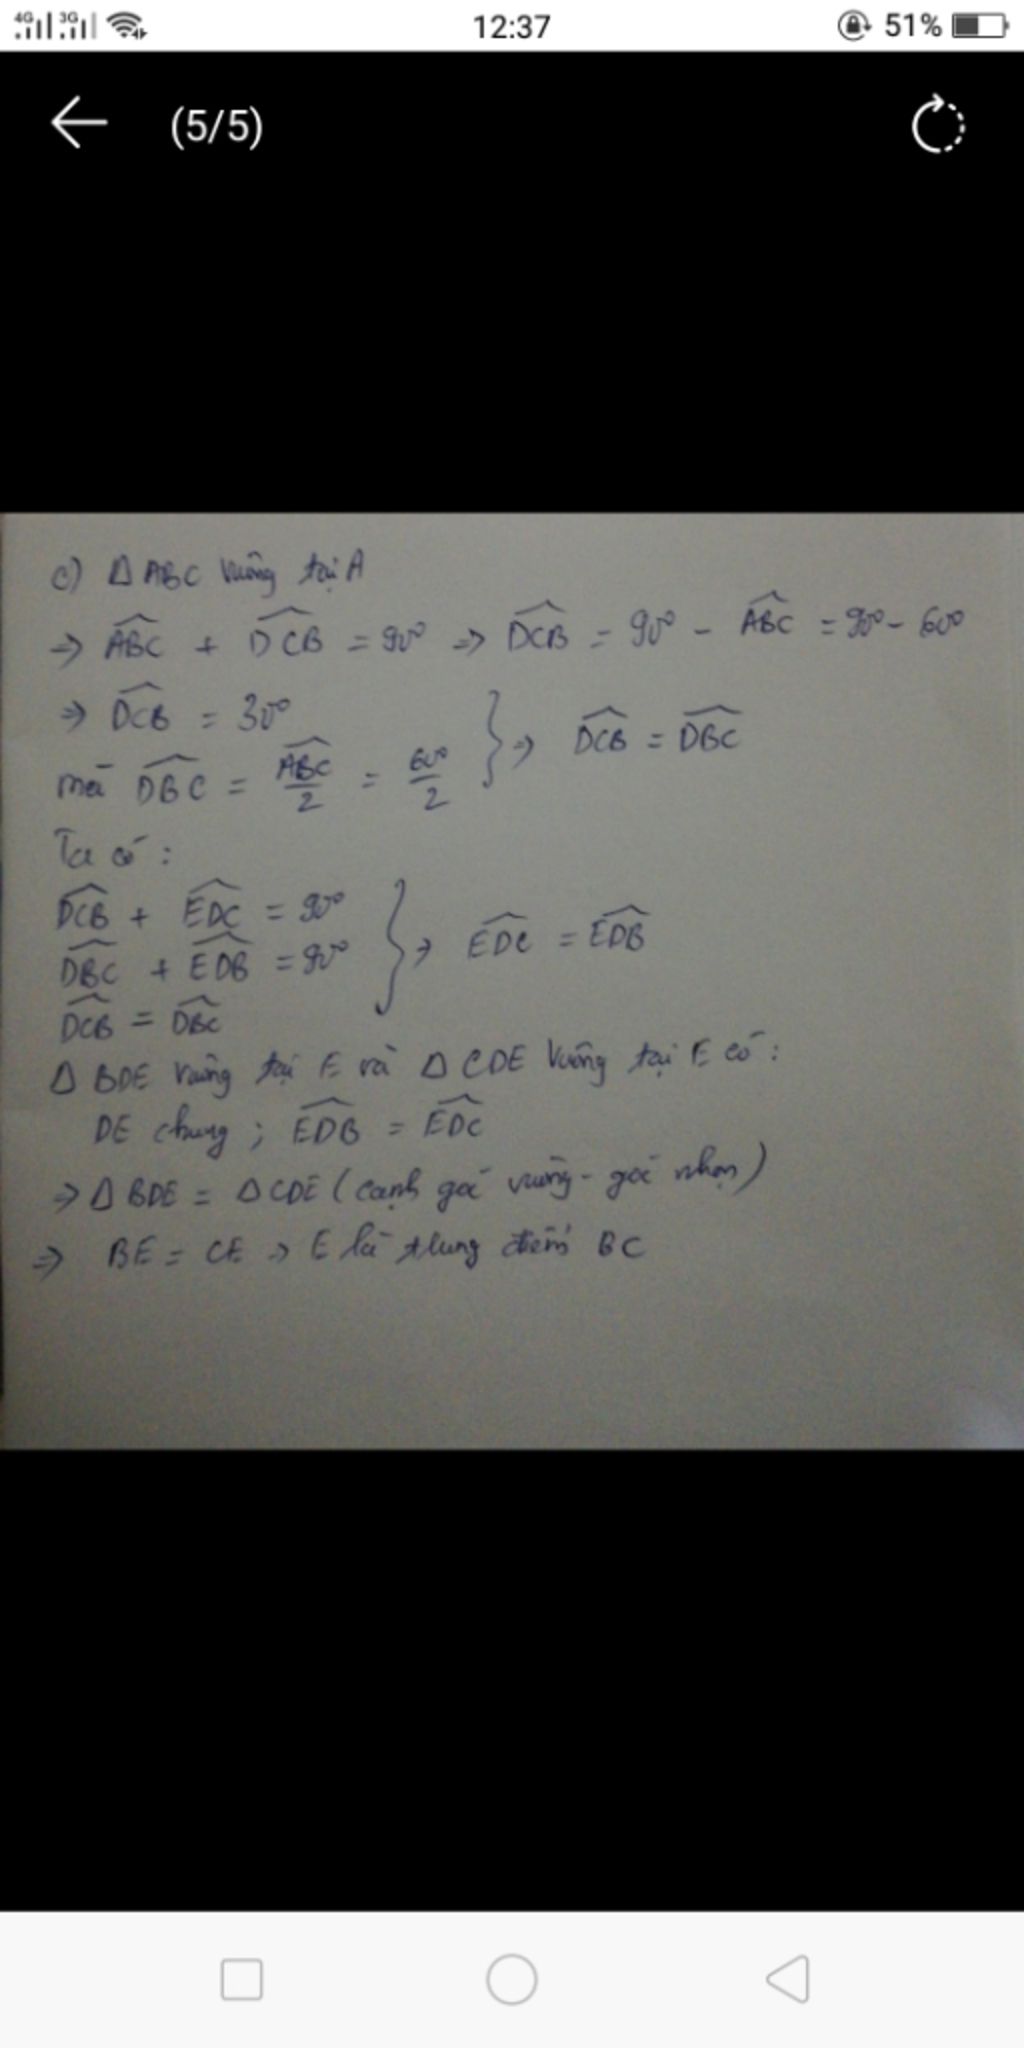 4G 3G 12:37 51%
(5/5)
c) Δ ABC vuông tại A
⇒ \widehat{ABC} + \widehat{DCB} = 90° ⇒ \widehat{DCB} = 90° - \widehat{ABC} = 90° - 60°
⇒ \widehat{DCB} = 30°
mà \widehat{DBC} = \frac{\widehat{ABC}}{2} = \frac{60°}{2} } ⇒ \widehat{DCB} = \widehat{DBC}
Ta có :
\widehat{DCB} + \widehat{EDC} = 90°
\widehat{DBC} + \widehat{EDB} = 90° } ⇒ \widehat{EDC} = \widehat{EDB}
\widehat{DCB} = \widehat{DBC}
Δ BDE vuông tại E và Δ CDE vuông tại E có :
DE chung ; \widehat{EDB} = \widehat{EDC}
⇒ Δ BDE = Δ CDE ( cạnh góc vuông - góc nhọn )
⇒ BE = CE ⇒ E là trung điểm BC